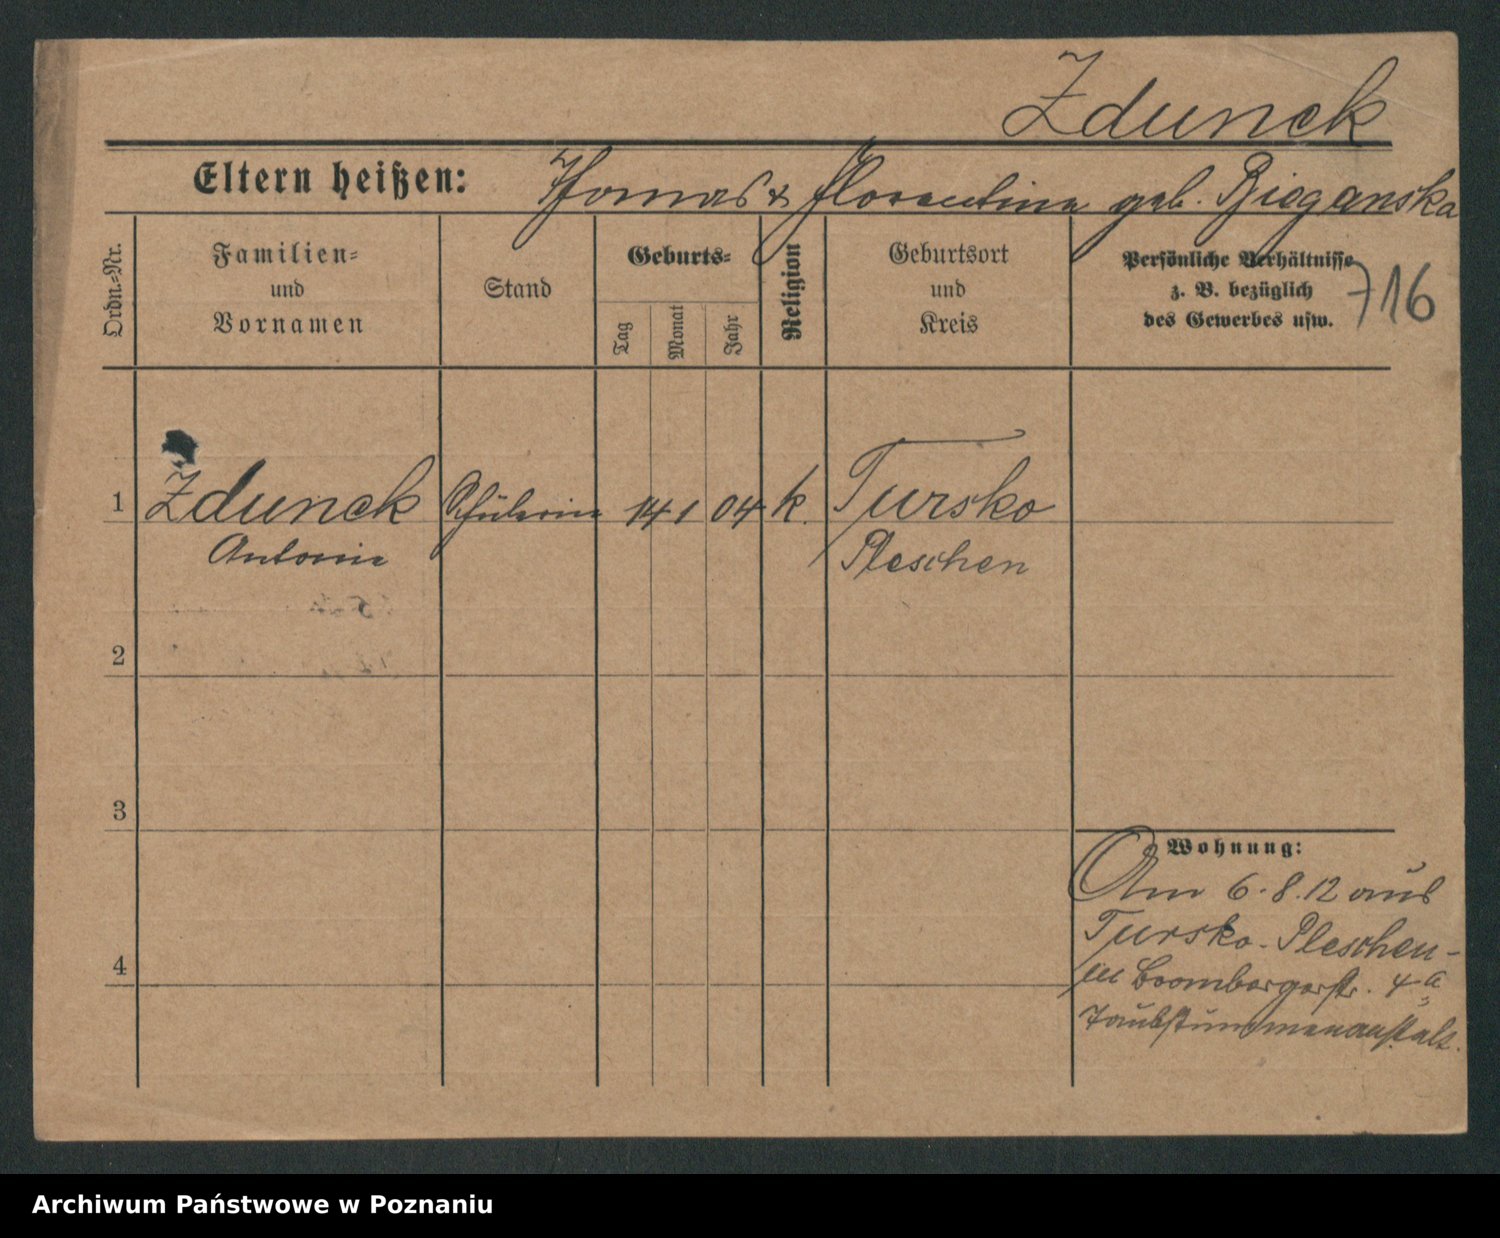 Zdunek
Eltern heißen: Thomas & Florentine geb. Bieganska
Ordn.-Nr.
Familien- und Vornamen
Stand
Geburts-
Tag
Monat
Jahr
Religion
Geburtsort und Kreis
Persönliche Verhältnisse
z. B. bezüglich
des Gewerbes usw.
716
1 Zdunek Schülerin 14 1 04 k. Tursko
Antonie Pleschen
2
3
Wohnung:
Am 6.8.12 aus
Tursko-Pleschen-
4
Brombergerstr. 4a
Taubstummenanstalt.
Archiwum Państwowe w Poznaniu